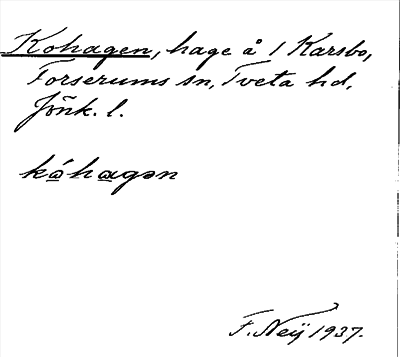 Kohagen, hage å 1 Karsbo,
Forserums sn, Tveta hd,
Jönk. l.
kóhagən
F. Neij 1937.